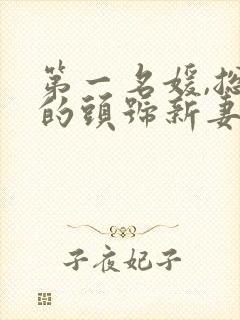 第一名媛,總
的頭號新妻
子夜妃子